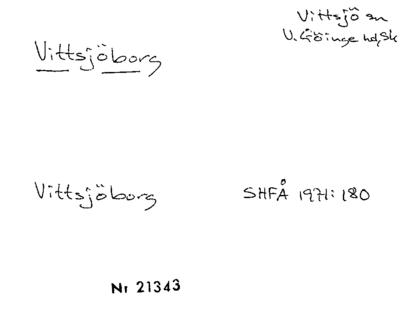 Vittsjö sn
V. Göinge hd, Sk
Vittsjöborg
Vittsjöborg SHFÅ 1971:180
Nr 21343